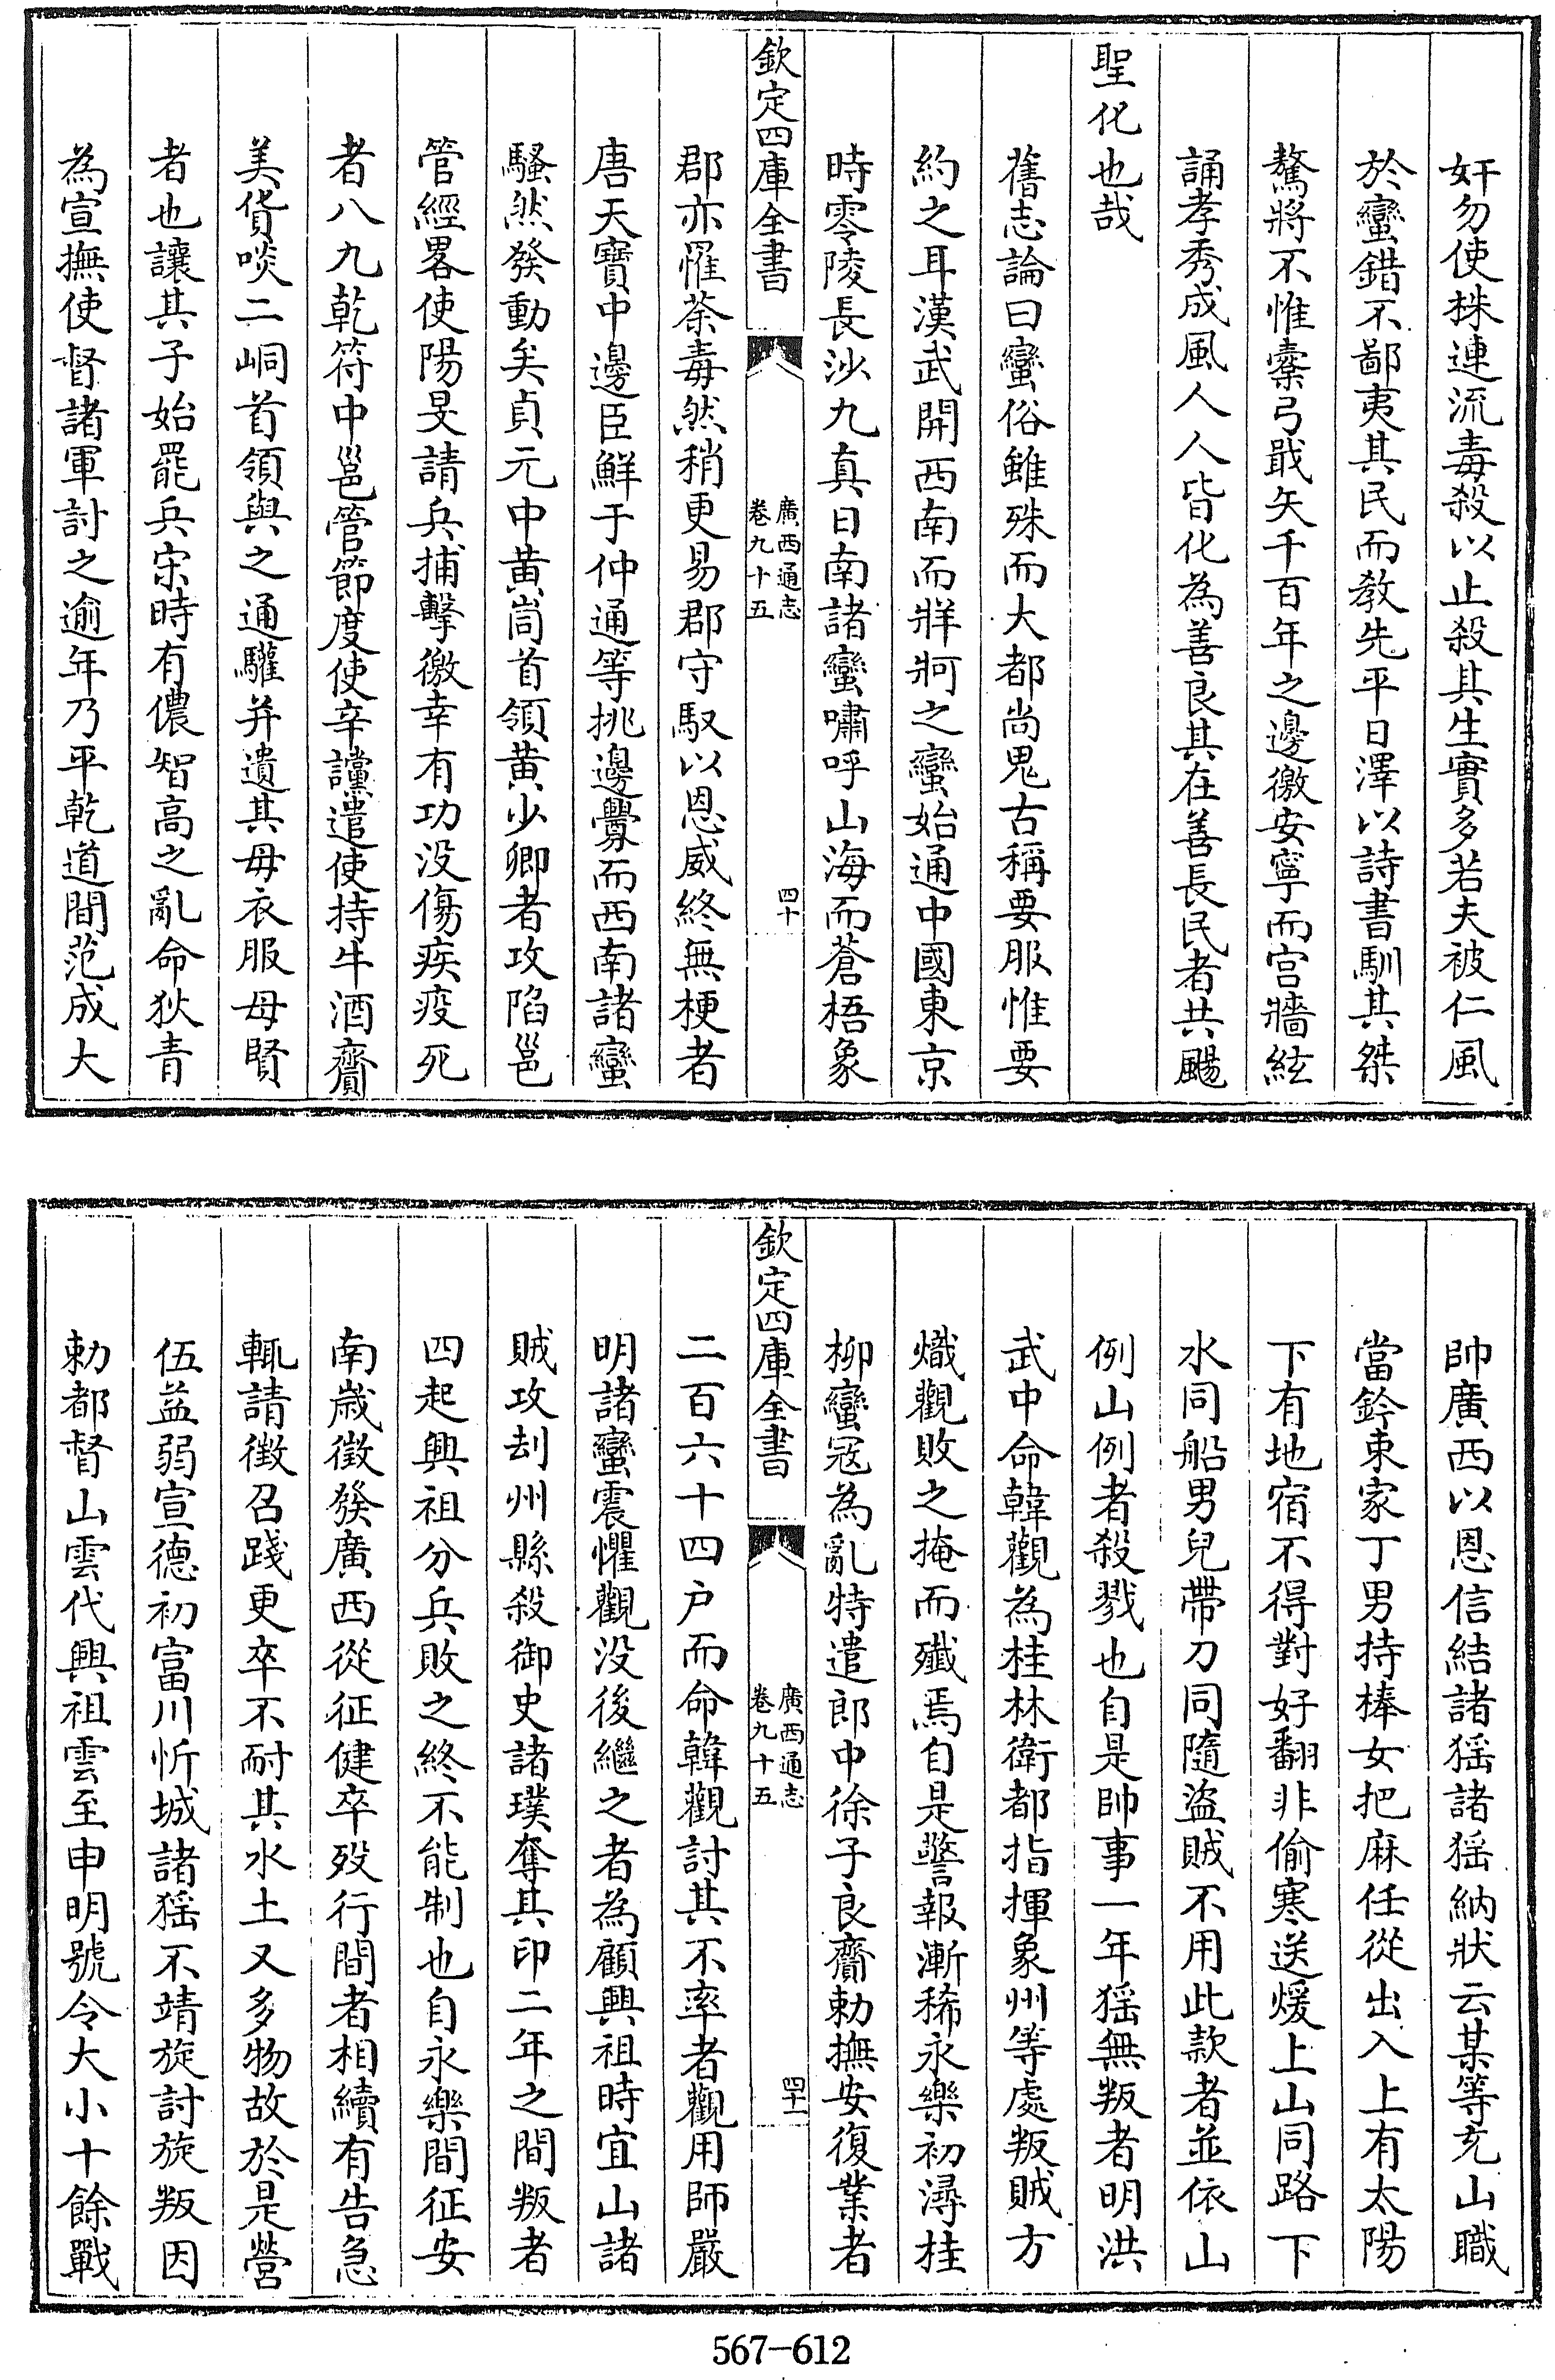 奸勿使株連流毒殺以止殺其生實多若夫被仁風
於蠻錯不鄙夷其民而教先平日澤以詩書馴其桀
驁將不惟櫜弓戢矢千百年之邊徼安寧而宫牆絃
誦孝秀成風人人皆化為善良其在善長民者共颺
聖化也哉
舊志論曰蠻俗雖殊而大都尚鬼古稱要服惟要
約之耳漢武開西南而牂牁之蠻始通中國東京
時零陵長沙九真日南諸蠻嘯呼山海而蒼梧象
欽定四庫全書
廣西通志
卷九十五
四十
郡亦罹荼毒然稍更易郡守馭以恩威終無梗者
唐天寶中邊臣鮮于仲通等挑邊釁而西南諸蠻
騷然發動矣貞元中黄峝首領黄少卿者攻陷邕
管經畧使陽旻請兵捕擊徼幸有功没傷疾疫死
者八九乾符中邕管節度使辛讜遣使持牛酒齎
美貨啖二峒首領與之通驩并遺其母衣服母賢
者也讓其子始罷兵宋時有儂智高之亂命狄青
為宣撫使督諸軍討之逾年乃平乾道間范成大
帥廣西以恩信結諸猺諸猺納狀云某等充山職
當鈐束家丁男持棒女把麻任從出入上有太陽
下有地宿不得對好翻非偷寒送煖上山同路下
水同船男兒帶刀同隨盜賊不用此款者並依山
例山例者殺戮也自是帥事一年猺無叛者明洪
武中命韓觀為桂林衛都指揮象州等處叛賊方
熾觀敗之掩而殲焉自是警報漸稀永樂初潯桂
柳蠻冦為亂特遣郎中徐子良齎勅撫安復業者
欽定四庫全書
廣西通志
卷九十五
四十一
二百六十四户而命韓觀討其不率者觀用師嚴
明諸蠻震懼觀没後繼之者為顧興祖時宜山諸
賊攻刦州縣殺御史諸璞奪其印二年之間叛者
四起興祖分兵敗之終不能制也自永樂間征安
南嵗徵發廣西從征健卒殁行間者相續有告急
輒請徵召踐更卒不耐其水土又多物故於是營
伍益弱宣德初富川忻城諸猺不靖旋討旋叛因
勅都督山雲代興祖雲至申明號令大小十餘戰
567-612